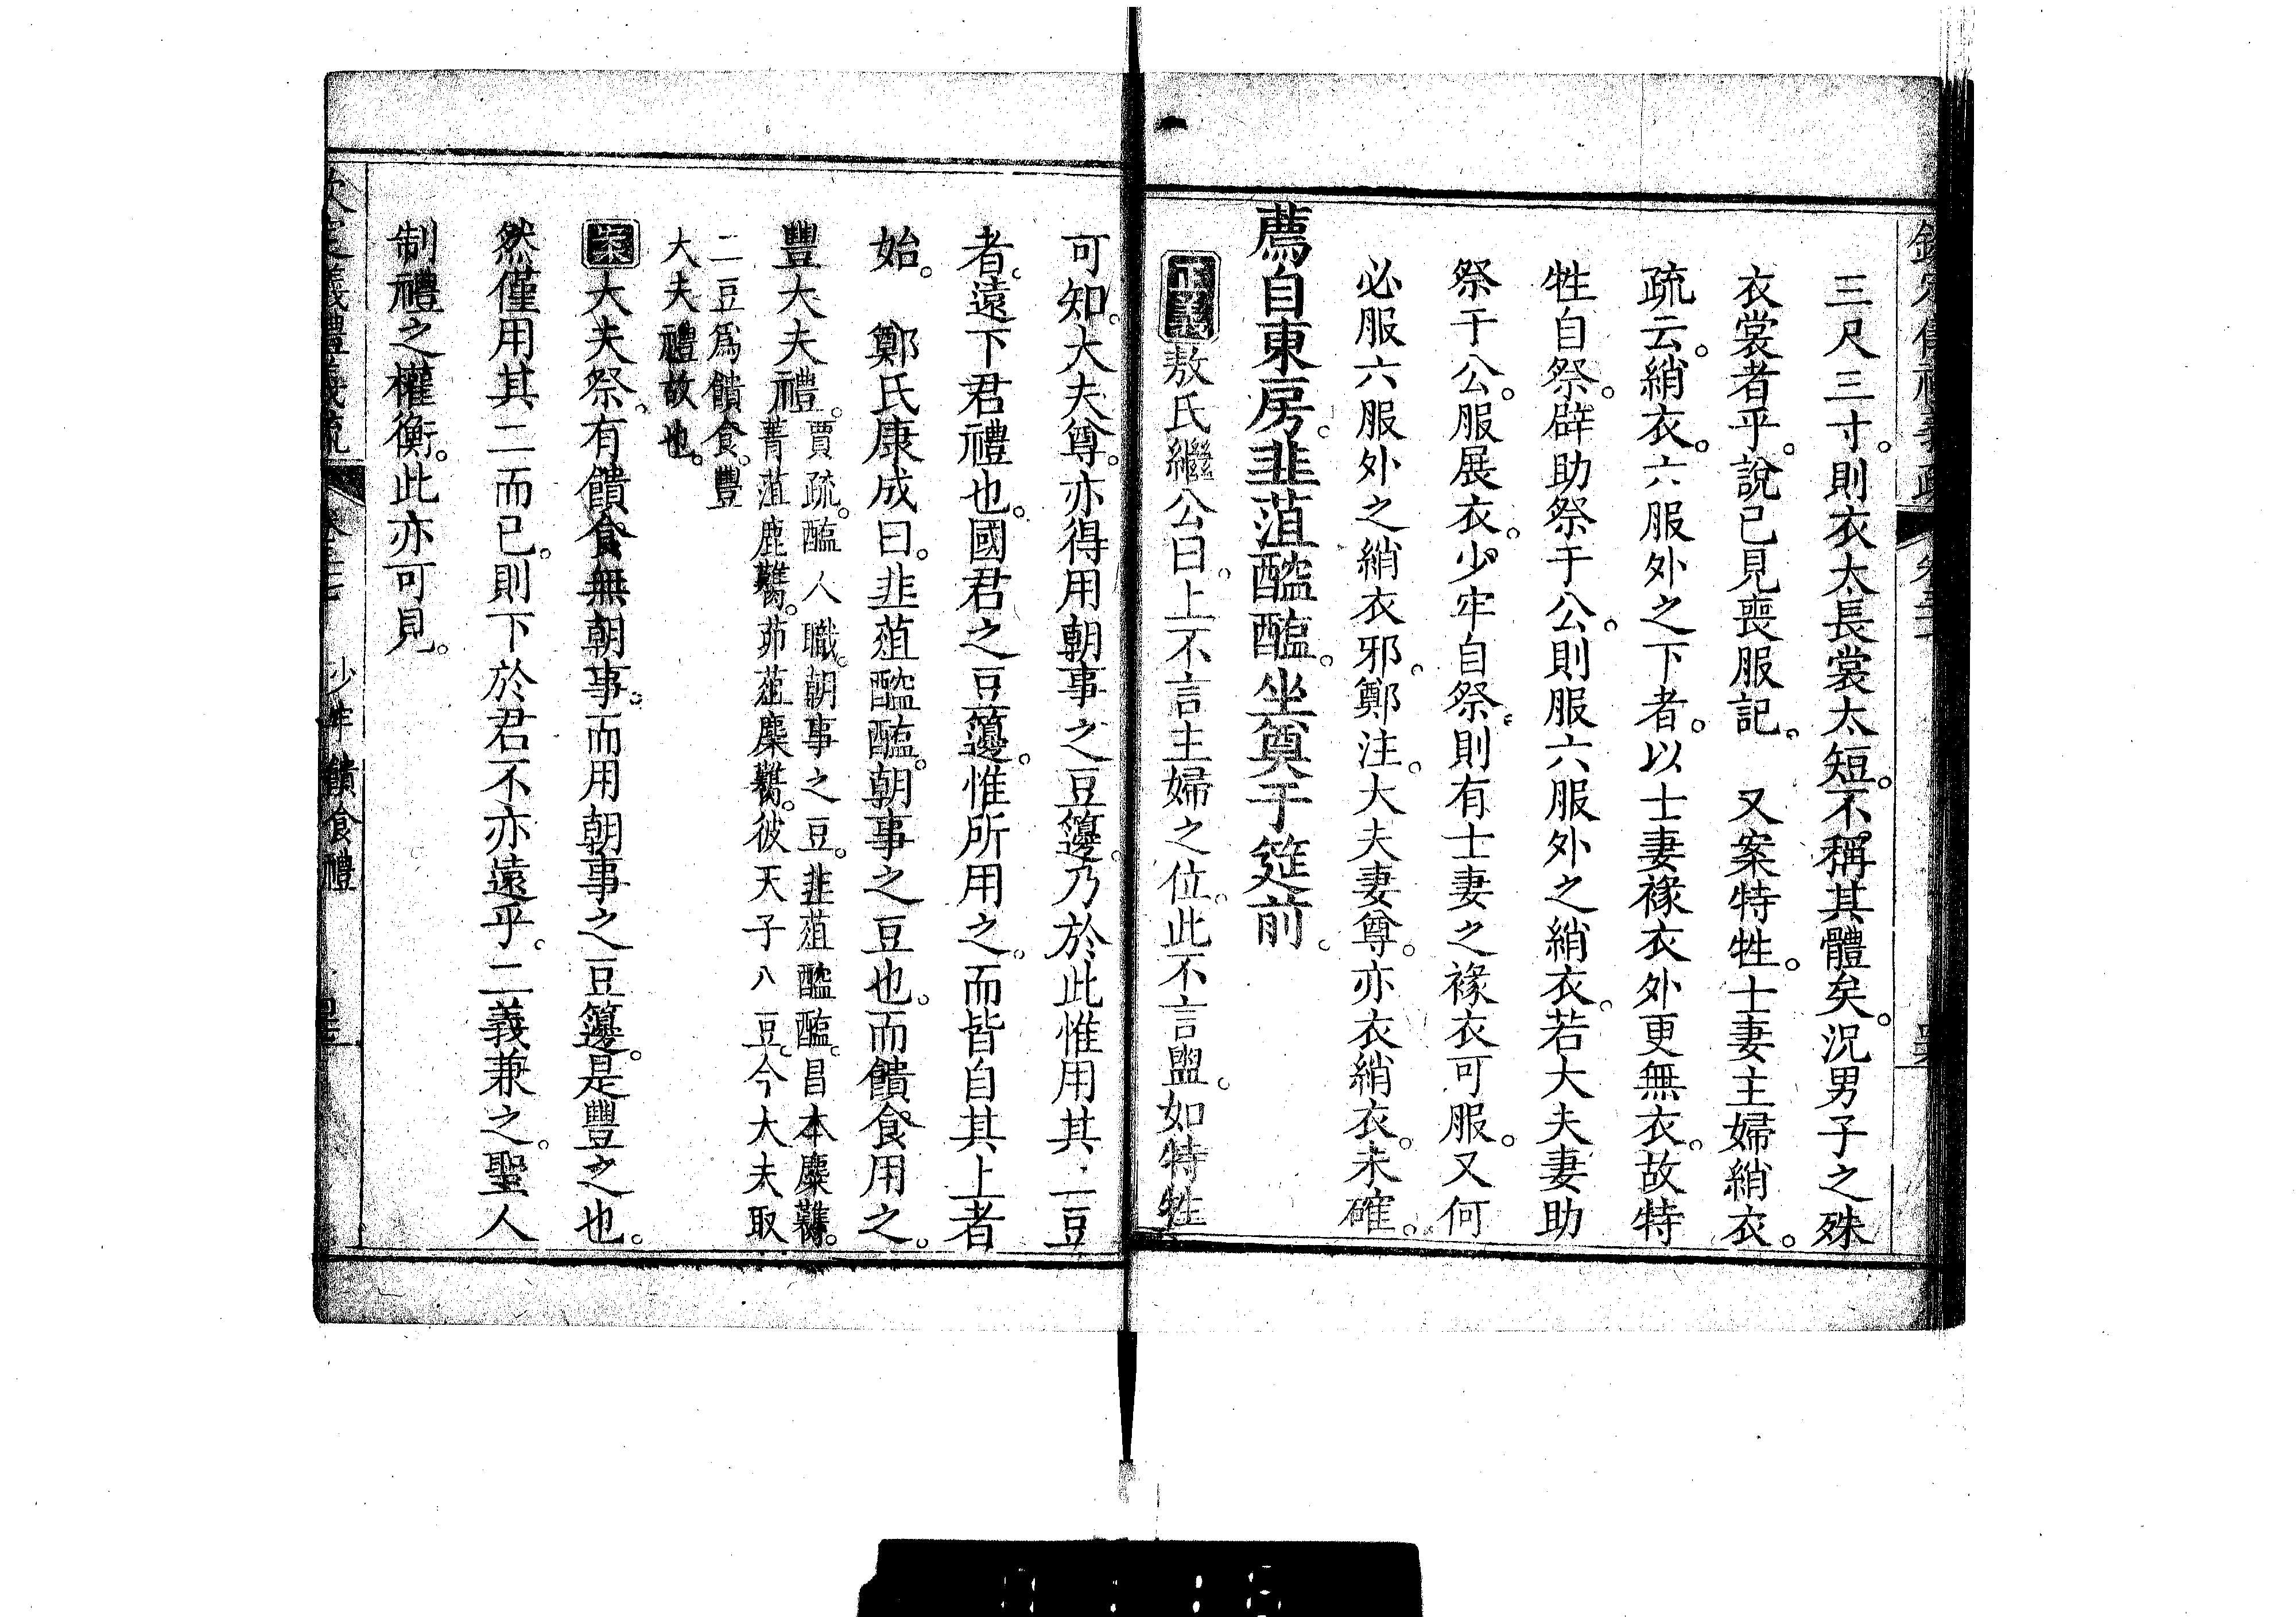 三尺三寸。則衣太長裳太短。不稱其體矣。況男子之殊
衣裳者乎。說已見喪服記。　又案特牲。士妻主婦綃衣。
疏云。綃衣。六服外之下者。以士妻褖衣外更無衣。故特
牲自祭。辟助祭于公。則服六服外之綃衣。若大夫妻助
祭于公。服展衣。少牢自祭。則有士妻之褖衣可服。又何
必服六服外之綃衣邪。鄭注。大夫妻尊。亦衣綃衣。未確。
薦自東房。韭菹醓醢。坐奠于筵前。
正義敖氏繼公曰。上不言主婦之位。此不言盥。如特牲
可知。大夫尊。亦得用朝事之豆籩。乃於此惟用其二豆
者。遠下君禮也。國君之豆籩。惟所用之。而皆自其上者
始。　鄭氏康成曰。韭菹醓醢。朝事之豆也。而饋食用之。
豐大夫禮。賈疏。醢人職。朝事之豆。韭菹醓醢。昌本麋臡。
菁菹鹿臡。茆菹麋臡。彼天子八豆。今大夫取
二豆爲饋食。豐
大夫禮故也。
案大夫祭。有饋食無朝事。而用朝事之豆籩。是豐之也。
然僅用其二而已。則下於君不亦遠乎。二義兼之。聖人
制禮之權衡。此亦可見。
欽定儀禮義疏　少牢饋食禮